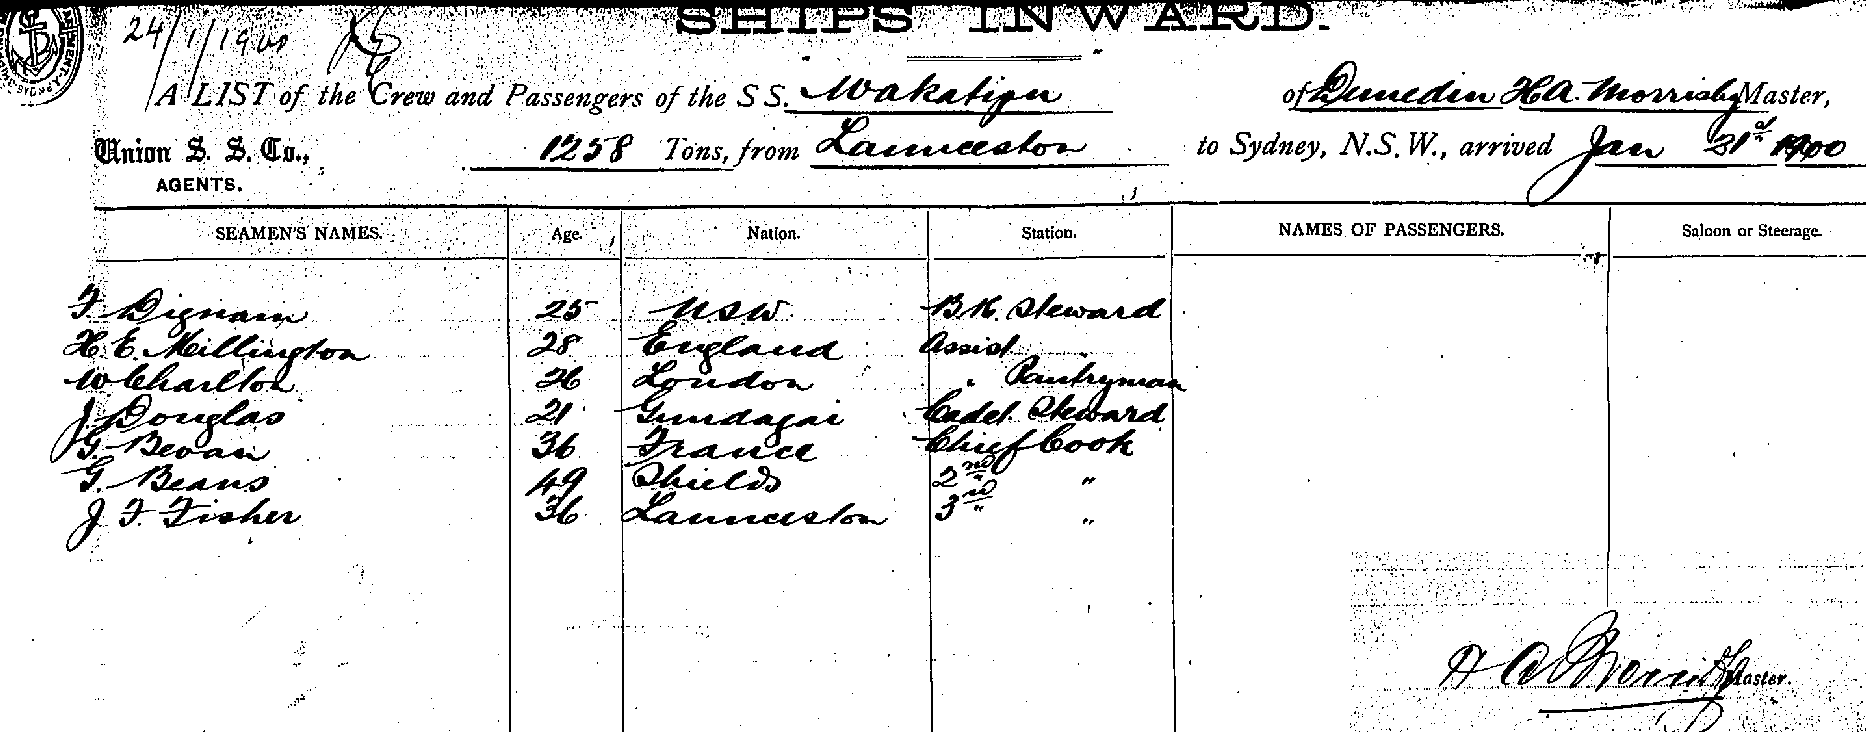 SHIPS INWARD.
24/1/1900
A LIST of the Crew and Passengers of the S S. Wakatipu of Dunedin H A. Morrisby Master,
Union S. S. Co., 1258 Tons, from Launceston to Sydney, N.S.W., arrived Jan 31st 1900
AGENTS.
SEAMEN'S NAMES. Age. Nation. Station. NAMES OF PASSENGERS. Saloon or Steerage.
F. Dignam 25 NSW. BK. Steward
H. E. Millington 28 England Assist
W Charlton 26 London " Pantryman
J Douglas 21 Gundagai Cadet Steward
G. Bevan 36 France Chief Cook
G. Beans 49 Shields 2nd "
J F. Fisher 36 Launceston 3rd "
H A Morrisby Master.